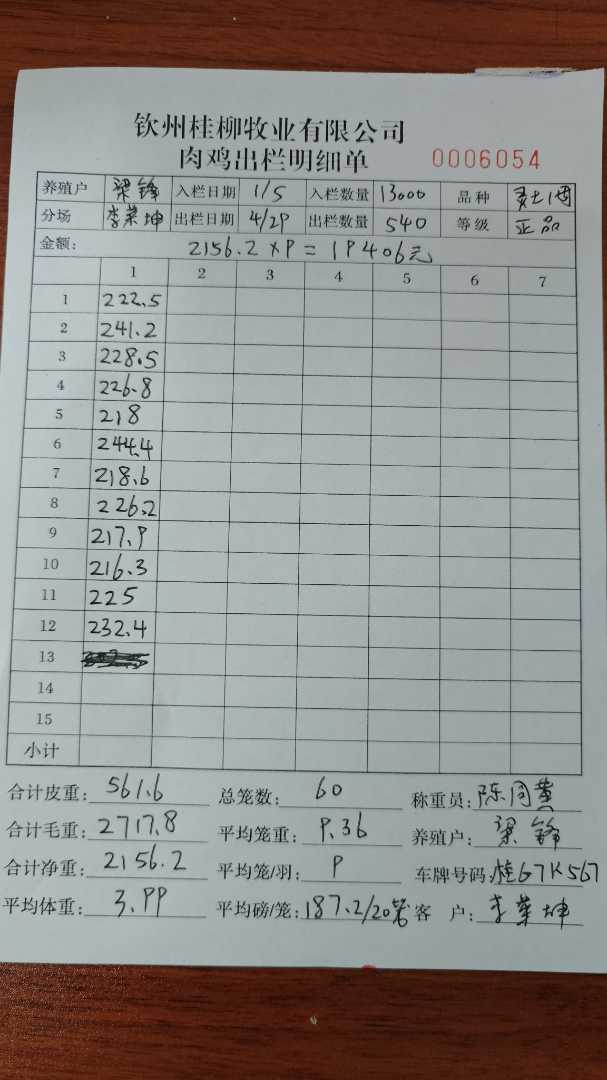 钦州桂柳牧业有限公司
肉鸡出栏明细单 0006054
养殖户 梁锋 入栏日期 1/5 入栏数量 13000 品种
分场 李荣坤 出栏日期 4/29 出栏数量 540 等级 正品
金额: 2156.2×9=19406元
1 2 3 4 5 6 7
1 222.5
2 241.2
3 228.5
4 226.8
5 218
6 244.4
7 218.6
8 226.2
9 217.9
10 216.3
11 225
12 232.4
13
14
15
小计
合计皮重: 561.6 总笼数: 60 称重员: 陈同黄
合计毛重: 2717.8 平均笼重: 9.36 养殖户: 梁锋
合计净重: 2156.2 平均笼/羽: 9 车牌号码: 桂G7K567
平均体重: 3.99 平均磅/笼: 187.2/20笼 客 户: 李荣坤